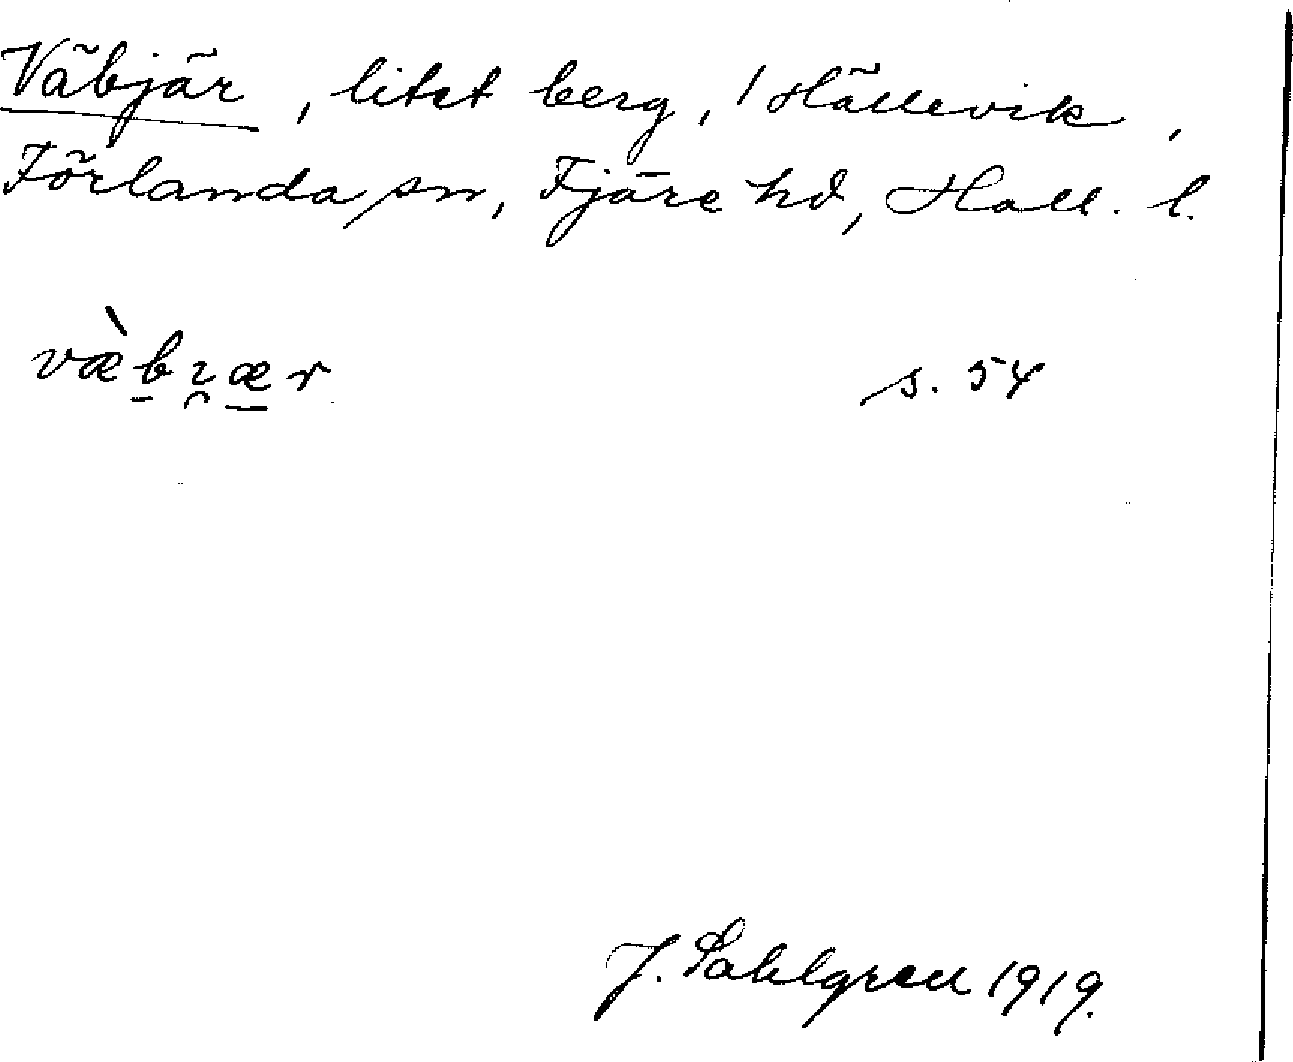 Väbjär, litet berg, / Hällevik,
Förlanda sn, Fjäre hd, Hall. l.
væ̀bɿ̯ær s. 54
J. Sahlgren 1919.